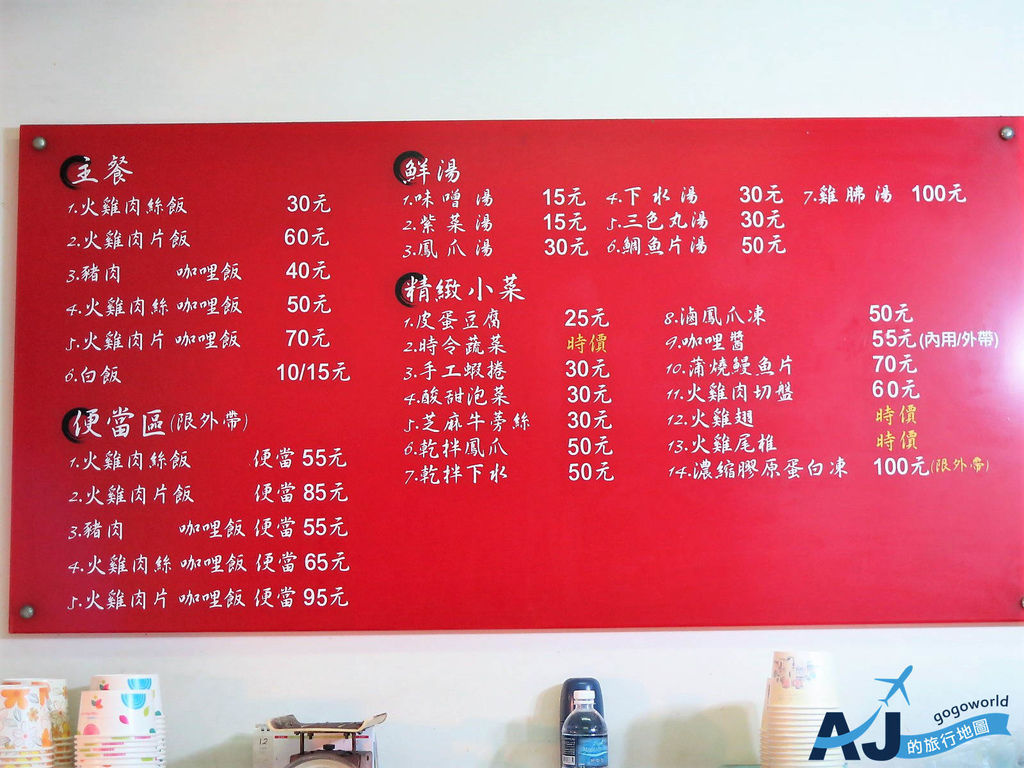 主餐
1.火雞肉絲飯 30元
2.火雞肉片飯 60元
3.豬肉 咖哩飯 40元
4.火雞肉絲 咖哩飯 50元
5.火雞肉片 咖哩飯 70元
6.白飯 10/15元
便當區(限外帶)
1.火雞肉絲飯 便當 55元
2.火雞肉片飯 便當 85元
3.豬肉 咖哩飯 便當 55元
4.火雞肉絲 咖哩飯 便當 65元
5.火雞肉片 咖哩飯 便當 95元
鮮湯
1.味噌湯 15元 4.下水湯 30元 7.雞腸湯 100元
2.紫菜湯 15元 5.三色丸湯 30元
3.鳳爪湯 30元 6.鯛魚片湯 50元
精緻小菜
1.皮蛋豆腐 25元
2.時令蔬菜 時價
3.手工蝦捲 30元
4.酸甜泡菜 30元
5.芝麻牛蒡絲 30元
6.乾拌鳳爪 50元
7.乾拌下水 50元
8.滷鳳爪凍 50元
9.咖哩醬 55元(內用/外帶)
10.蒲燒鰻魚片 70元
11.火雞肉切盤 60元
12.火雞翅 時價
13.火雞尾椎 時價
14.濃縮膠原蛋白凍 100元(限外帶)
12
gogoworld
AJ的旅行地圖